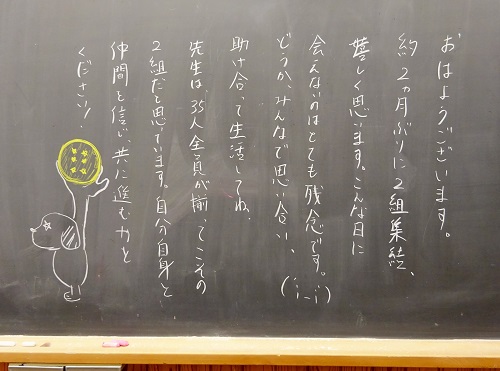 おはようございます。
約2ヵ月ぶりに2組集結、
嬉しく思います。こんな日に
会えないのはとても残念です。(;_;)
どうか、みんなで思い合い、
助け合って生活してね。
先生は、35人全員が揃ってこその
2組だと思ています。自分自身と
仲間を信じ、共に進む力を
ください!